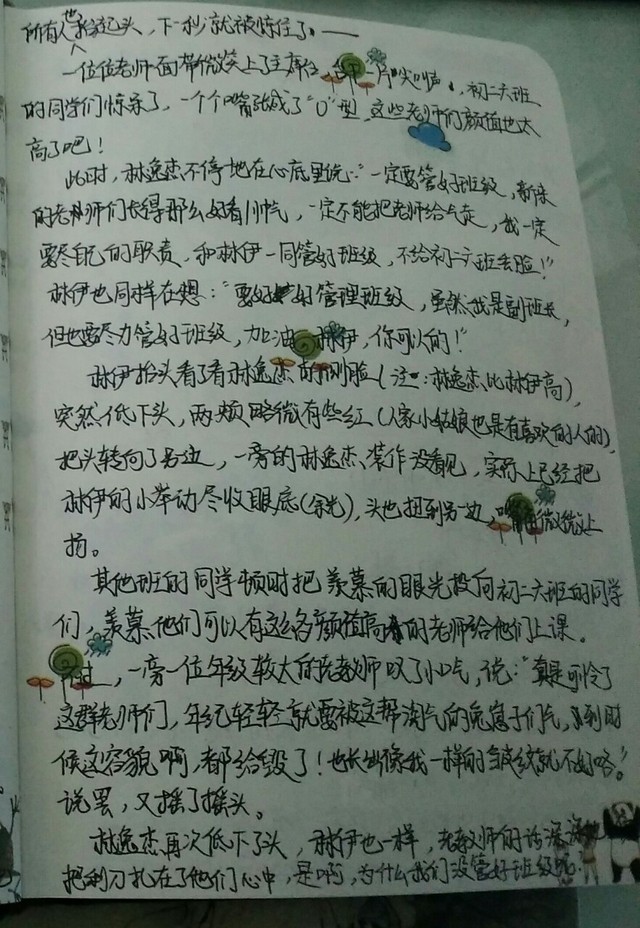 所有人也抬起头，下一秒就被惊住了。——
一位位老师面带微笑上了主席台，一片尖叫声，初二六班
的同学们惊呆了，一个个嘴张成了“O”型，这些老师们颜值也太
高了吧！
此时，林逸杰不停地在心底里说：“一定要管好班级，新来
的老师们长得那么好看、帅气，一定不能把老师给气走，我一定
要尽自己的职责，和林伊一同管好班级，不给初二六班丢脸！”
林伊也同样在想：“要好好管理班级，虽然我是副班长，
但也要尽力管好班级，加油，林伊，你可以的！”
林伊抬头看了看林逸杰的侧脸（注：林逸杰比林伊高），
突然低下头，两颊略微有些红（人家小姑娘也是有喜欢的人的），
把头转向了另边，一旁的林逸杰装作没看见，实际上已经把
林伊的小举动尽收眼底（余光），头也扭到另一边，嘴角微微上
扬。
其他班的同学顿时把羡慕的眼光投向初二六班的同学
们，羡慕他们可以有这么多颜值高的老师给他们上课。
不过，一旁一位年级较大的老教师叹了口气，说：“真是可怜了
这群老师们，年纪轻轻就要被这帮淘气的兔崽子们气，到时
候这容貌啊，都给毁了！也长出像我一样的皱纹就不好咯。”
说罢，又摇了摇头。
林逸杰再次低下了头，林伊也一样，老教师的话深深
把利刀扎在了他们心中，是啊，为什么我们没管好班级呢